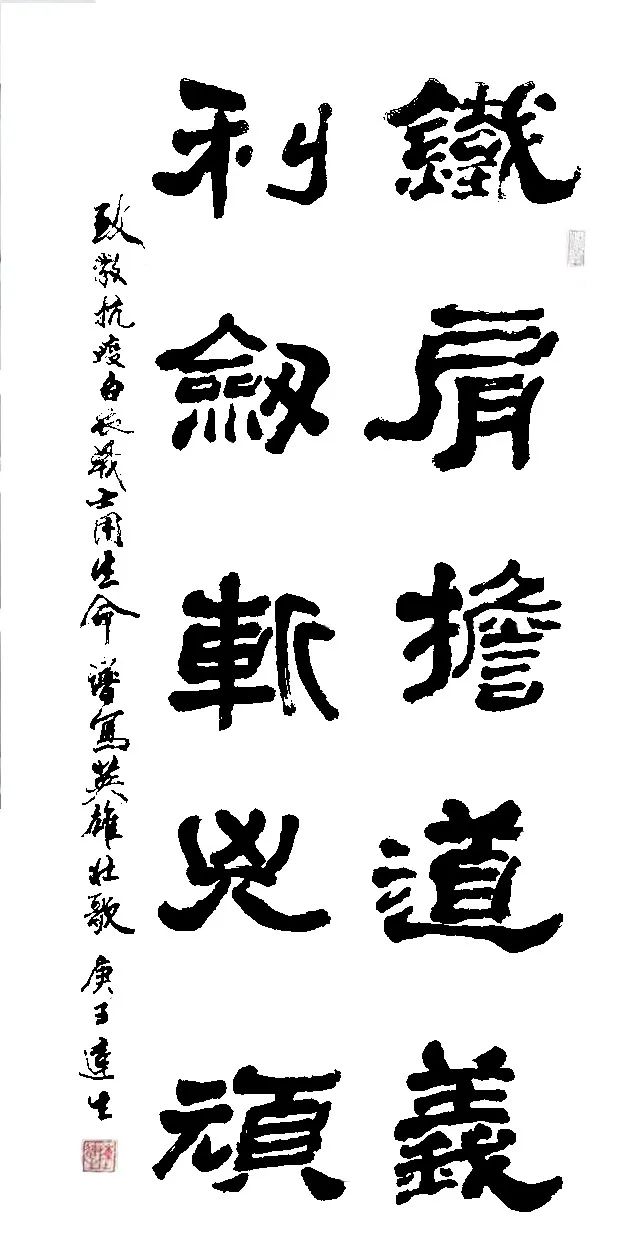 鐵肩擔道義
利劒斬兇頑
致敬抗疫白衣战士用生命譜寫英雄壮歌
庚子達生